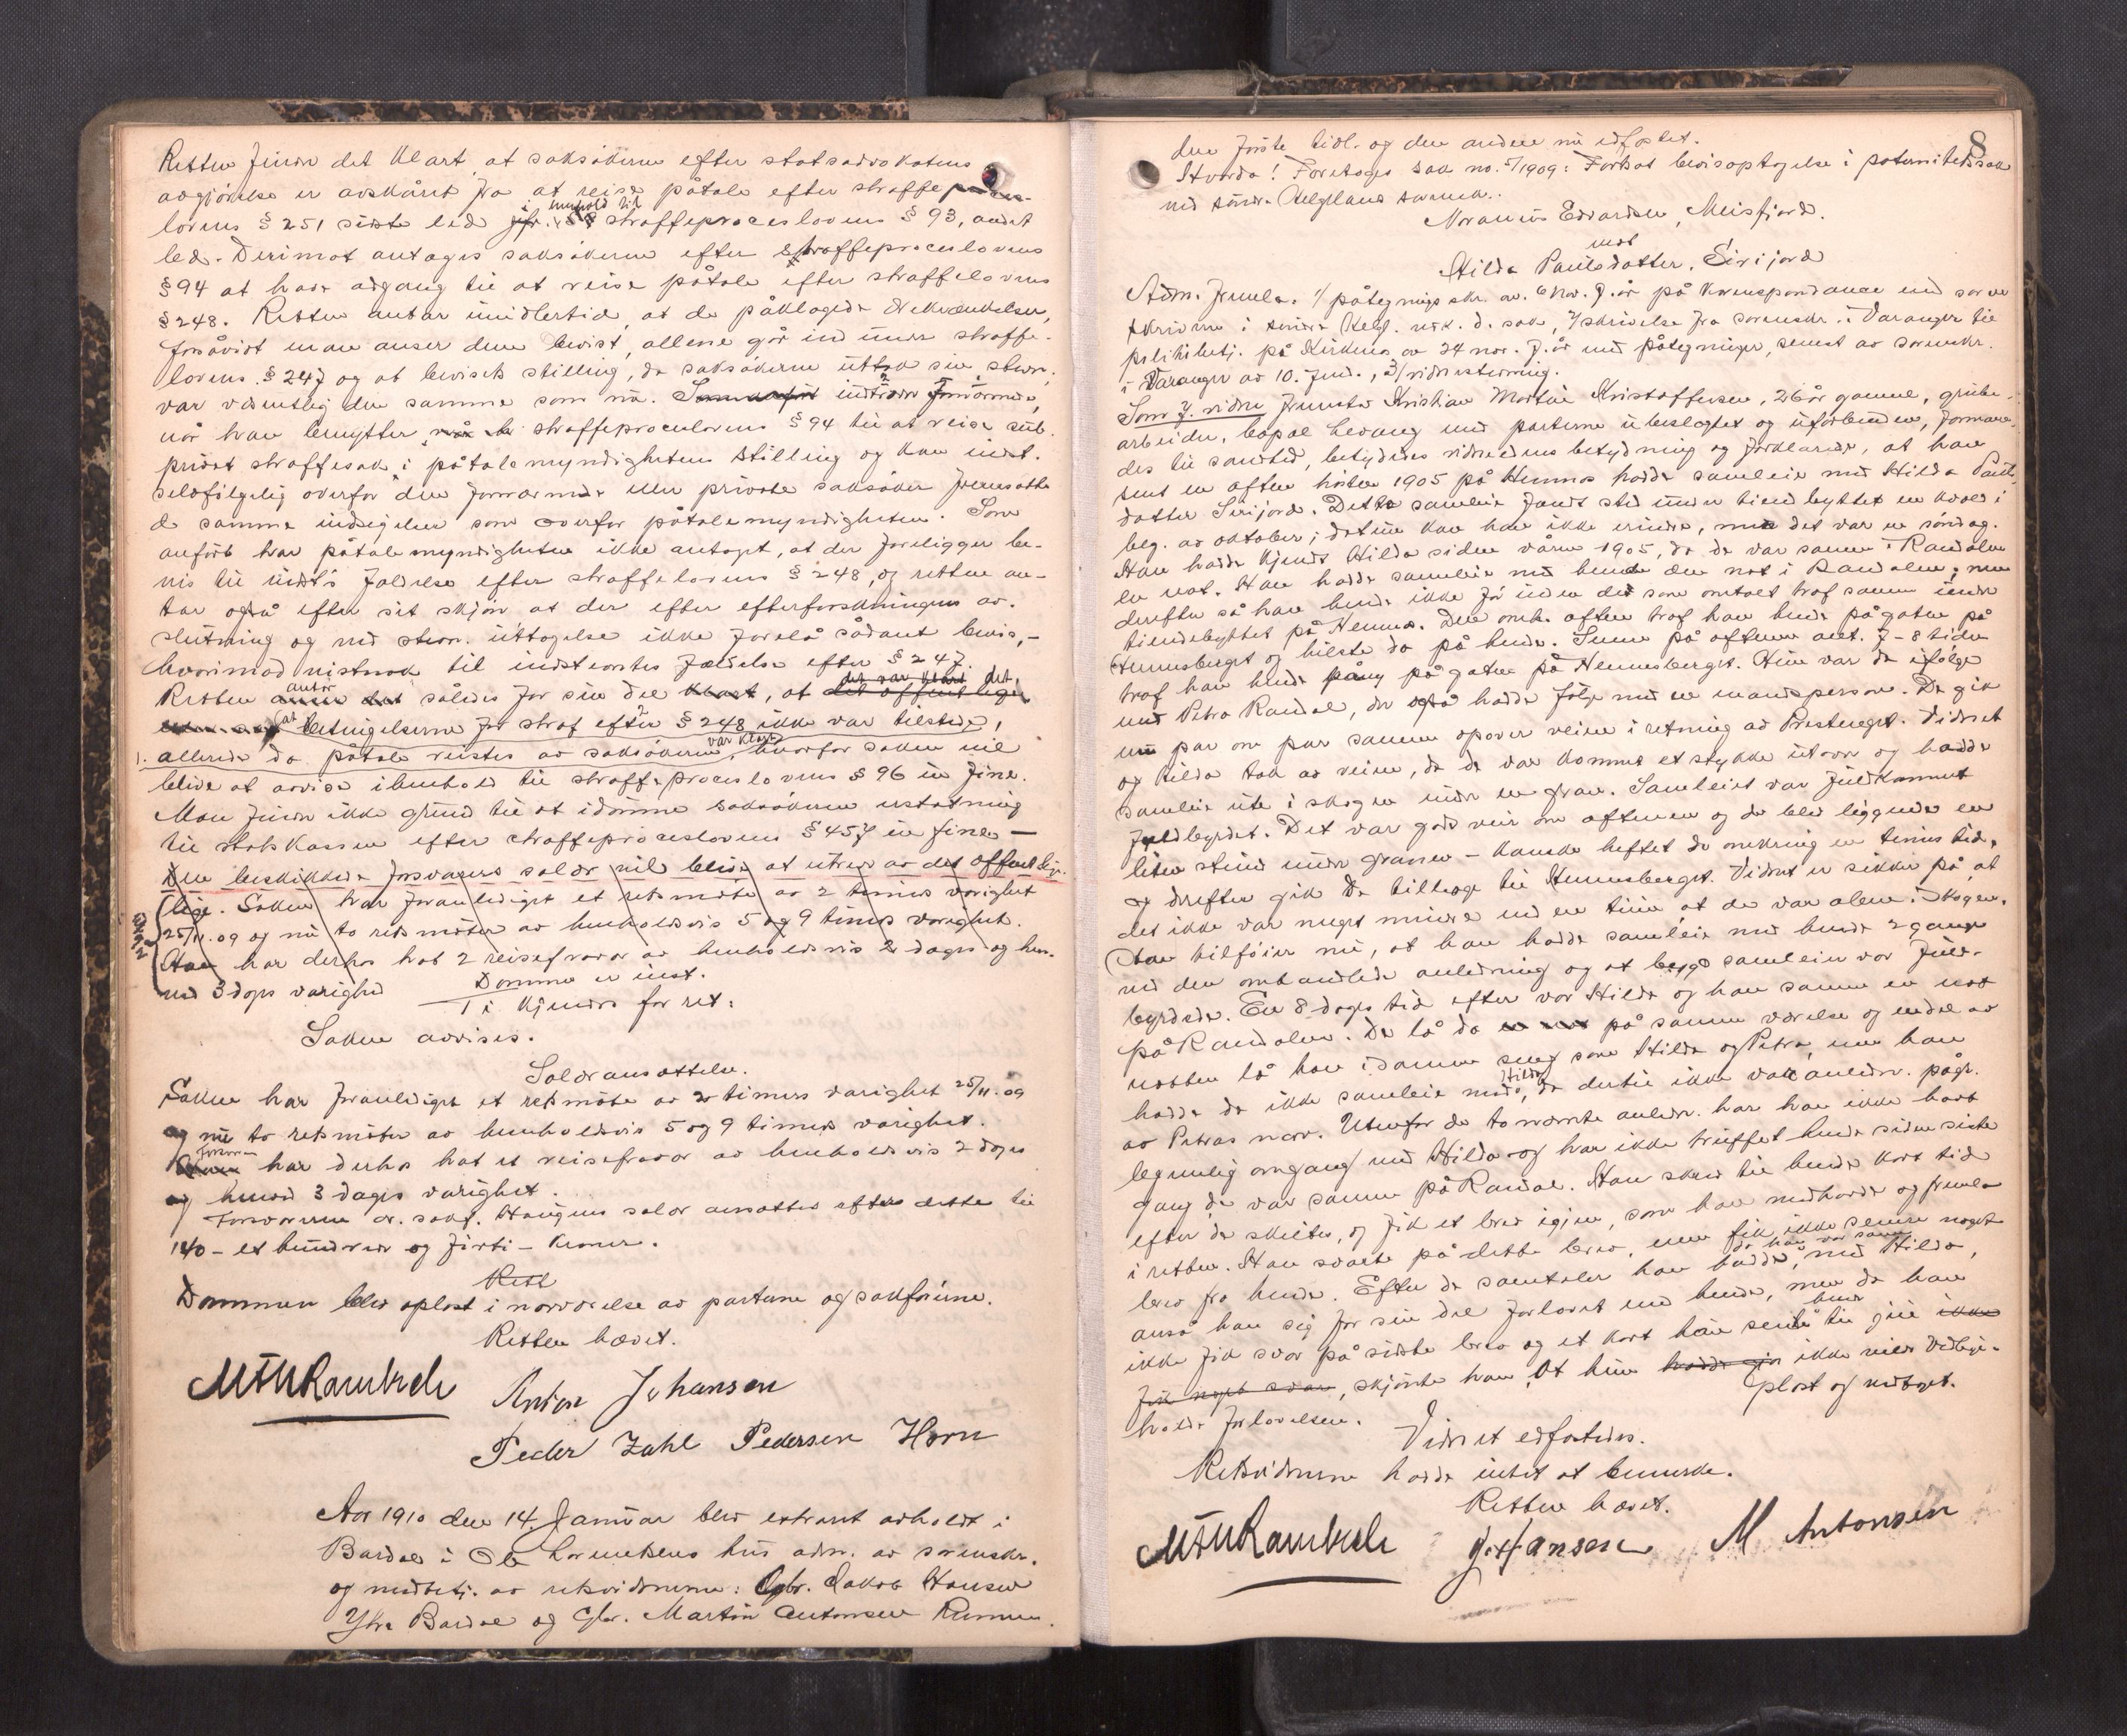 Retten finder det klart at saksökeren efter statsadvokatens
avgjörelse er avskåret fra at reise påtale efter straffe
lovens § 251 siste led i henhold til straffeproceslovens § 93, andet
led. Derimot antages saksökeren efter straffeproceslovens
§ 94 at have adgang til at reise påtale efter straffelovens
§ 248. Retten antar imidlertid at de påklagede ærekrænkelser,
forsåvidt man anser dem bevist, allene går ind under straffe-
lovens § 247 og at bevisets stilling, da saksökeren uttok sin stevn.
var væsentlig den samme som nu. indtræder fornærmede,
når han benytter straffeproceslovens § 94 til at reise sub.
privat straffesak i påtalemyndighetens stilling og kan indst.
selvfölgelig overfor den fornærmede eller private saksöker fremsætte
de samme indsigelser som overfor påtalemyndigheten. Som
anfört har påtalemyndigheten ikke antaget, at der foreligger be-
vis til indst's fældelse efter straffelovens § 248, og retten an-
tar også efter sit skjön at der efter efterforskningens av-
slutning og ved stevn. uttagelse ikke forelå sådant bevis, -
hvorimod vistnok til indstevntes fældelse efter § 247.
Retten antar således for sin del, at det var klart det
at betingelserne for straf efter § 248 ikke var tilstede,
allerede da påtale reistes av saksökeren, hvorfor saken vil
blive at avvise i henhold til straffeproceslovens § 96 in fine.
Man finder ikke grund til at idömme saksökeren erstatning
til statskassen efter straffeproceslovens § 457 in fine -
Den beskikkede forsvarers salær vil blive at utrede av det offentlige.
lige. Saken har foranlediget et retsmöte av 2 timers varighet
25/11.09 og nu to retsmöter av henholdsvis 5 og 9 timers varighet.
Han har derhos hat 2 reisefravær av henholdsvis 2 dages og hen-
ved 3 dages varighed
Domme er inst.
Ti kjendes for ret:
Saken avvises.
Salæransættelse.
Saken har foranlediget et retsmöte av 2 timers varighet 25/11.09
og nu to retsmöter av henholdsvis 5 og 9 timers varighet.
Forsvareren har derhos hat et reisefravær av henholdsvis 2 dages
og henved 3 dages varighet.
Forsvareren or. sakf. Haugens salær ansættes efter dette til
140 - et hundrede og firti - kroner.
Rett
Dommen blev oplæst i nærværelse av parterne og sakförerne.
Retten hævet.
Anton Johansen
Peder Zahl Pedersen Horn
Aar 1910 den 14. Januar blev extraret avholdt i
Bardal i Ole Lorentsens hus adm. av sorenskr.
og medbetj. av retsvidnerne: Gbr. Jakob Hansen
Ytre Bardal og Gbr. Martin Antonsen
8
den förste tidl. og den anden nu edfæstet.
Hvorda! Foretoges sak no. 5/1909: Fortsat bevisoptagelse i paternitetssak
ved söndre Helgeland sorensk..
Edvardsen, Meisfjord.
mot
Hilda Paulsdatter, Sirijord
Adm. fremla. 1/ påtegningsskr. av 6 nov. f.år på korrespondance med soren
skriveren i söndre Helg. vedk. d. sak, 2/ skrivelse fra sorenskr. i Varanger til
politibetj. på Kirkenes av 24 nov. f.år med påtegninger, senest av sorenskr.
i Varanger av 10. Jan., 3/ vidnestevning.
Som 7. vidne fremstod Kristian Martin Kristoffersen, 26 år gammel, grube-
arbeider, bopæl Levang med parterne ubeslægtet og uforbunden, formane-
des til sandhed, betydedes vidneedens betydning og forklarede, at han
sent en aften hösten 1905 på Hemnes hadde samleie med Hilda Pauls
datter Sirijord. Dette samleie fandt sted under tiendebyttet en kveld i
beg. av oktober; datum kan han ikke erindre, men det var en söndag.
Han hadde kjendt Hilda siden våren 1905, da de var sammen i Ranbalen
en nat. Han hadde samleie med hende den nat i Ranbalen; men
derefter så han hende ikke för under det som omtalt traf sammen under
tiendebyttet på Hemnes. Den omh. aften traf han hende på gaten på
Hemnesberget og hilste da på hende. Senere på aftenen ant. 7-8 tiden
traf han hende påny på gaten på Hemnesberget. Hun var da ifölge
med Petra Randal, der også hadde fölge med en mandsperson. De gik
nu par om par sammen opover veien i retning av Prestneget. Vidnet
og Hilda tok av veien, da de var kommet et stykke utover og hadde
samleie ute i skogen under en gran. Samleiet var fuldkomment
fuldbyrdet. Det var godt veir om aftenen og de blev liggende en
liten stund under granen - kanske heftet de omkring en times tid,
og derefter gik de tilbage til Hemnesberget. Vidnet er sikker på, at
det ikke var noget mindre end en time at de var alene i skogen.
Han tilföier nu, at han hadde samleie med hende 2 gange
ved den omhandlede anledning og at begge samleier var fuld-
byrdede. En 8 dages tid efter var Hilda og han sammen en nat
på Randalen. De lå da på samme værelse og endel av
natten lå han i samme seng som Hilda og Petra, men han
hadde da ikke samleie med Hilda, da dertil ikke var anledn. pågr.
av Petras nærv. Utenfor de to nævnte anledn. har han ikke hat
legemlig omgang med Hilda og har ikke truffet hende siden siste
gang de var sammen på Randal. Han skrev til hende kort tid
efter de skiltes, og fik et brev igjen, som han medhadde og fremla
i retten. Han svarte på dette brev, men fik ikke senere noget
brev fra hende. Efter de samtaler han hadde, da han var sammen med Hilda,
anså han sig for sin del forlovet med hende, men da han
ikke fik svar på sidste brev og et kort han sendte hende til jul
, skjönte han, at hun ikke vilde vedlige-
holde forlovelsen.
Oplæst og vedtaget.
Vidnet edfæstedes.
Retsvidnerne hadde intet at bemerke.
Retten hævet.
J. Hansen M Antonsen